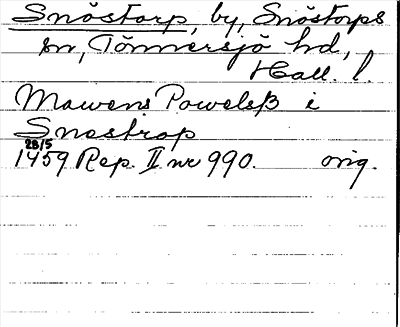 Snöstorp, by, Snöstorps
sn, Tönnersjö hd,
Hall. l.
Mawens Powelsß i
Snostrop
28/5
1459 Rep. II nr 990. orig.